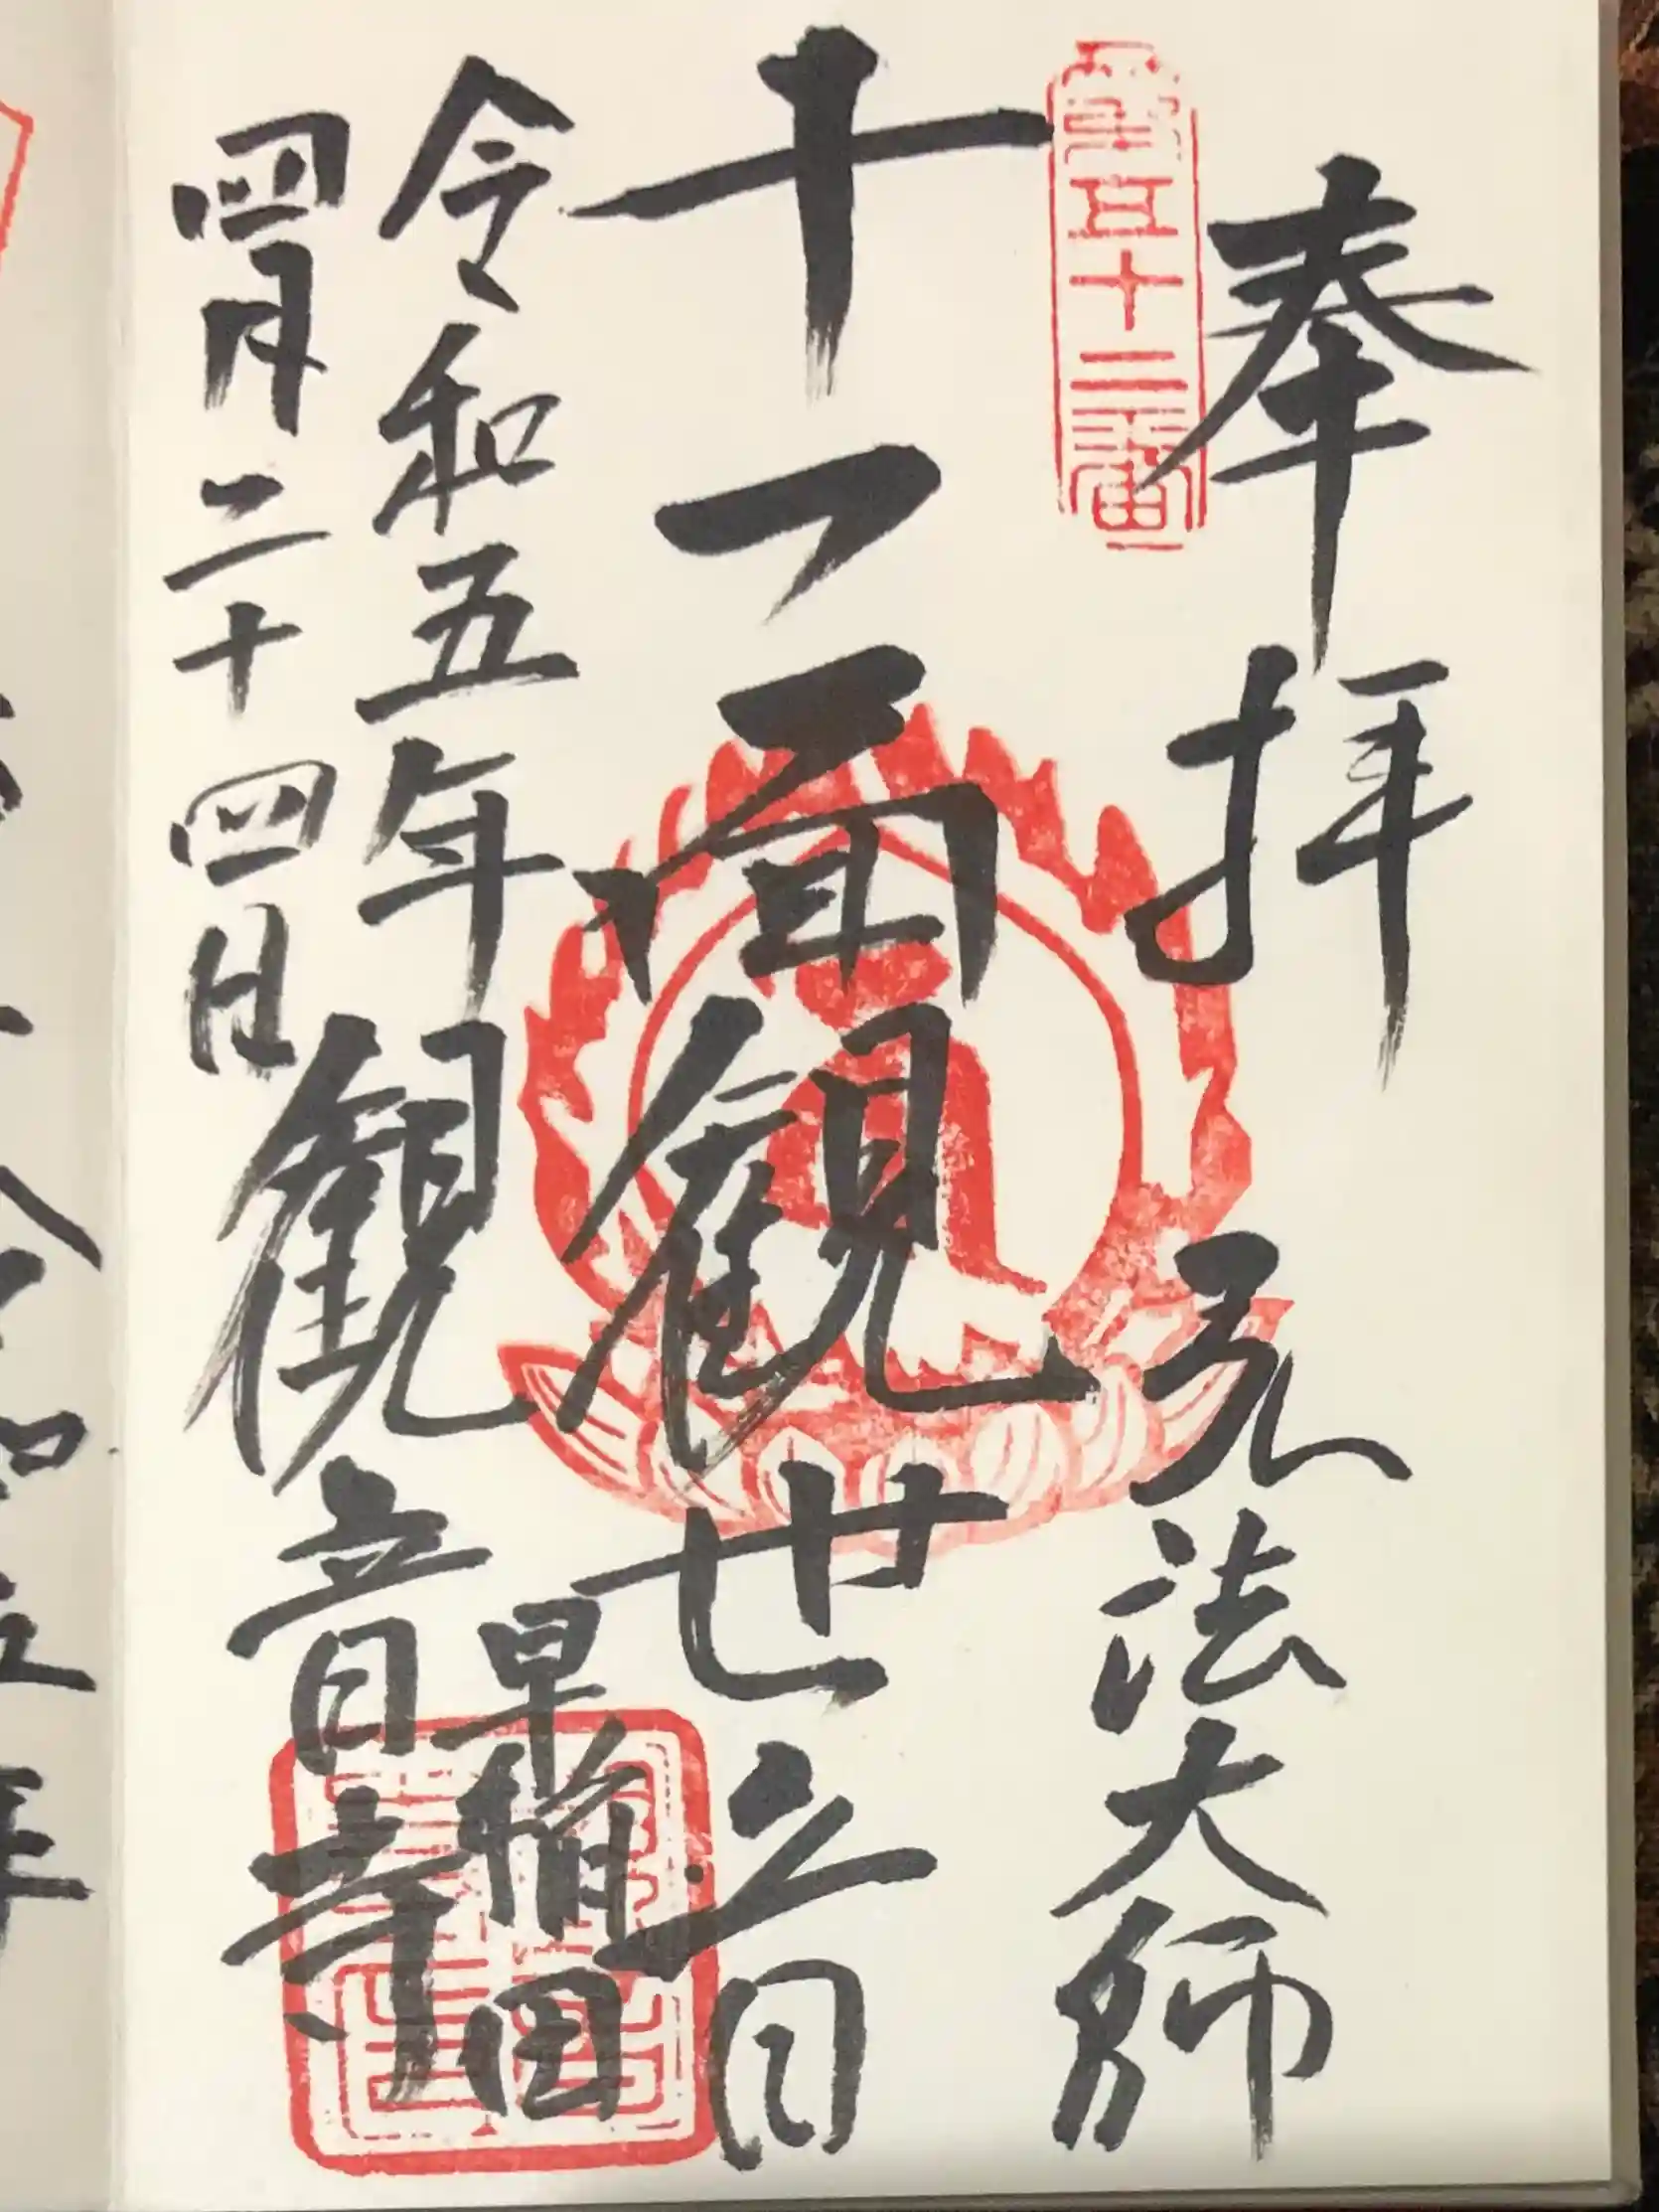 奉拝 弘法大師
第五十二番
十一面観世音
令和五年
四月二十四日
早稲田
観音寺